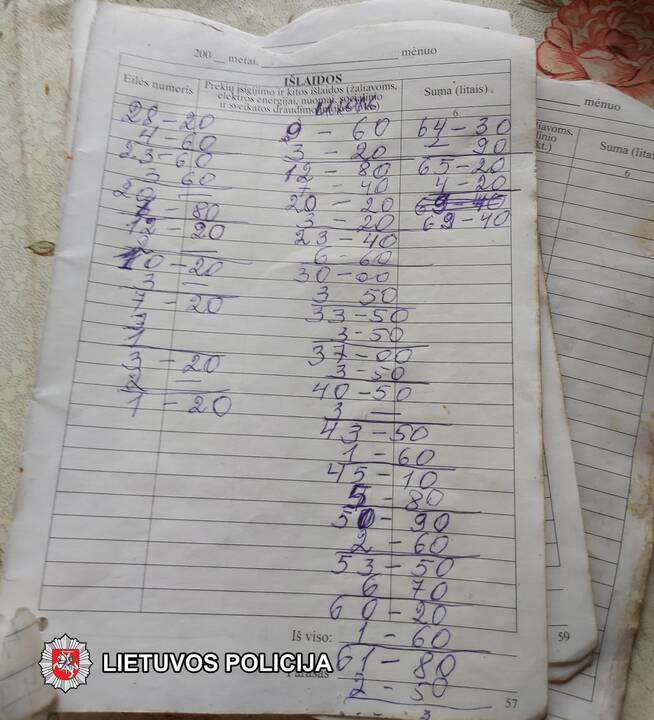 200 __ metai, ________ mėnuo
IŠLAIDOS
Eilės numeris
Prekių įsigijimo ir kitos išlaidos (žaliavoms,
elektros energijai, nuomai, socialinio
ir sveikatos draudimo
Suma (litais)
6
28-20
4-60
23-60
3 60
20 -
7-80
12-20
2 —
10-20
3 —
7-20
3
1
3-20
2 —
1-20
9-60
3-20
12-80
7-40
20-20
3-20
23-40
6-60
30-00
3 50
33-50
3-50
37-00
3-50
40-50
3 —
43-50
1-60
45-10
5-80
50-90
2-60
53-50
6 70
60-20
1-60
61-80
2-50
64-30
90
65-20
4-20
69-40
69-40
Iš viso:
Parašas
57
LIETUVOS POLICIJA
mėnuo
žiavoms,
linio
kt.)
Suma (litai
6
59